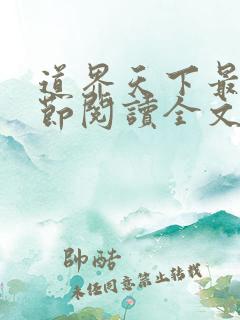 道界天下最
節閱讀全文
帥酷
未任同意禁止转载